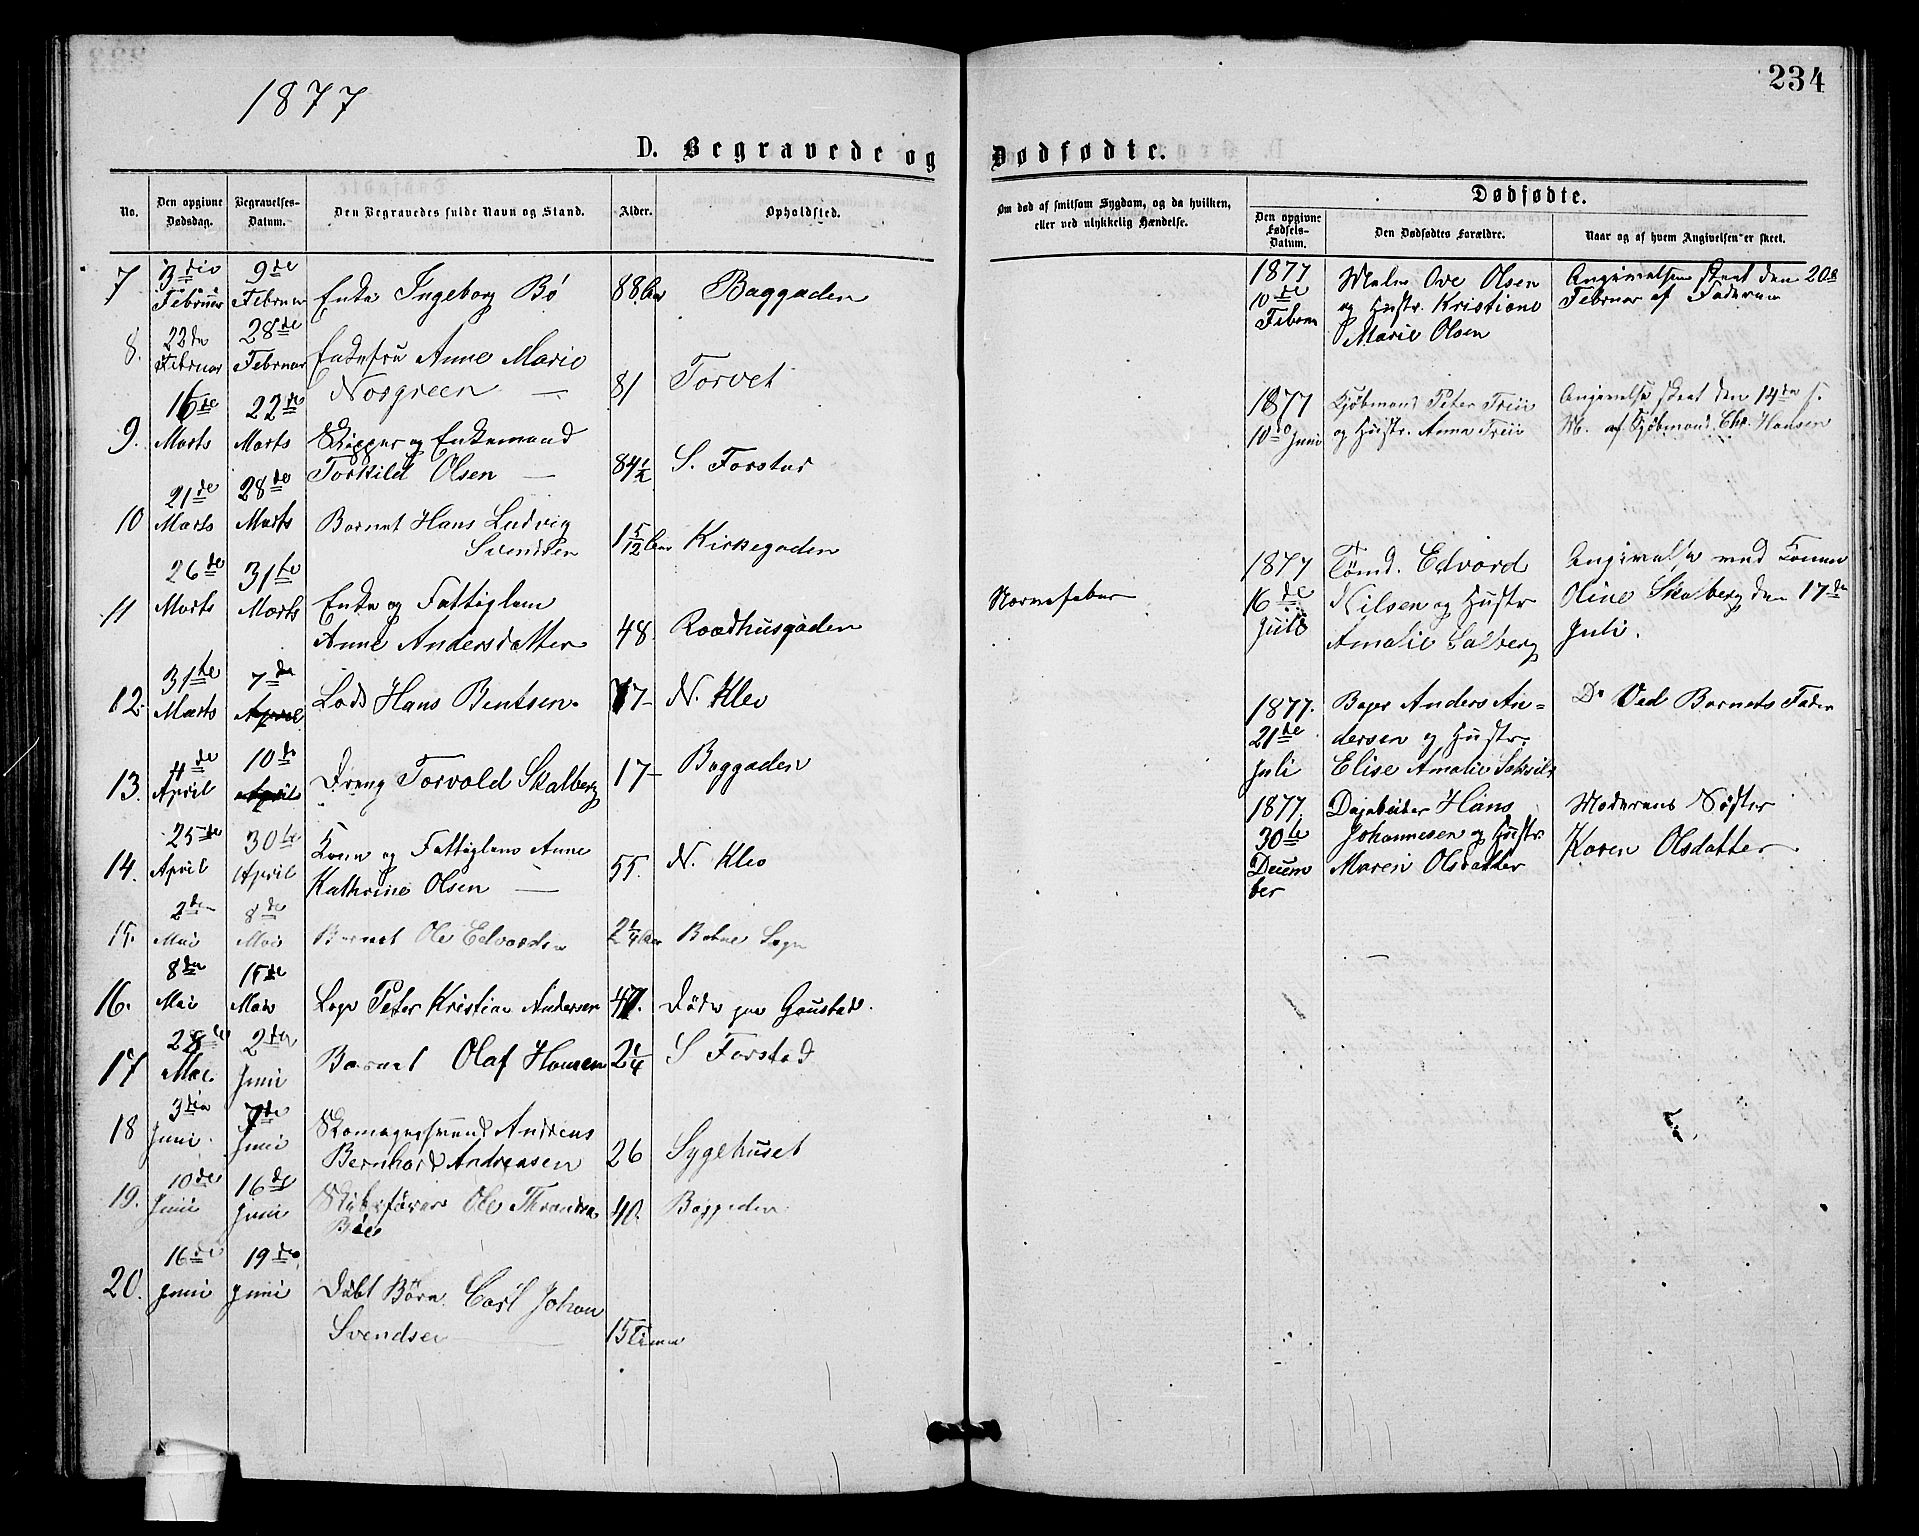 1877
234
D. Begravede og Dødfødte.
No.
Den opgivne Dødsdag.
Begravelses-Datum.
Den Begravedes fulde Navn og Stand.
Alder.
Opholdsted.
Om død af smitsom Sygdom, og da hvilken, eller ved ulykkelig Hændelse.
Dødfødte.
Den opgivne Fødsels-Datum.
Den Dødfødtes Forældre.
Naar og af hvem Angivelsen er skeet.
7 3die Februar 9de Februar Enke Ingeborg Bö 88 Aar Baggaden
8. 22de Februar 28de Februar Enkefru Anne Marie
Norgreen — 81 Torvet
9. 16de Marts 22de Marts Skipper og Enkemand
Torkild Olsen — 84½ S. Forstad
10 21de Marts 28de Marts Barnet Hans Ludvig
Svendsen 1 5/12 Aar Kirkegaden
11 26de Marts 31te Marts Enke og Fattiglem
Anne Andersdatter 48. Raadhusgaden
12. 31te Marts 7de April Lods Hans Bentsen. 77- N. Klev
13. 4de April 10de April Dreng Torvald Skalberg 17- Baggaden
14. 25de April 30te April Kone og Fattiglem Anne
Kathrine Olsen — 55. N. Klev
15. 2de Mai 8de Mai Barnet Ole Edvardsen 2¼ Aar Sogn
16. 8de Mai 15de Mai Peter Kristian Andersen 47. Döde paa Goustad.
17 28de Mai 2den Juni Barnet Olaf Hansen 2¼ S Forstad
18 3die Juni. 7de Juni Skomagersvend Andreas
Bernhard Andreasen 26 Sygehuset
19. 10de Juni 16de Juni Skibsförer Ole
Böe 40. Baggaden
20. 16de Juni 19de Juni Döbt Börn. Carl Johan
Svendsen — 15 Timer
Nervefeber
1877
10de
Februar
Maler Ove Olsen
og Hustr. Kristiane
Marie Olsen
Angivelsen skeet den 20de
Februar af Faderen
1877
10de Juni
Kjöbmand Peter
og Hustr. Anna
Angivelse skeet den 14de s.
M. af Kjöbmand Chr. Hansen
1877
16de
Juli
Tömd. Edvard
Nilsen og Hustr
Amalie Salberg
Angivelse ved
Oline Skalberg den 17de
Juli.
1877.
21de
Juli
Bager Anders An=
dersen og Hustr.
Elise Amalie
Do Ved Barnets Fader
1877.
30te
Decem
ber
Dagarbeider Hans
Johannesen og Hustr
Maren Olsdatter
Moderens Söster
Karen Olsdatter